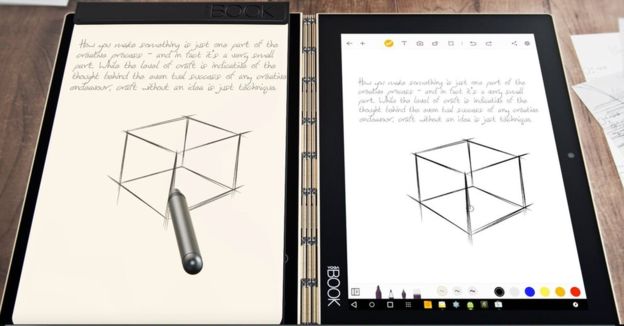 BOOK
How you make something is just one part of the
creative process - and in fact it's a very small
part. While the level of craft is indicative of the
thought behind the even tual success of any creative
endeavour, craft without an idea is just technique.
How you make something is just one part of the
creative process - and in fact it's a very small
part. While the level of craft is indicative of the
thought behind the even tual success of any creative
endeavour, craft without an idea is just technique.
YOGA BOOK